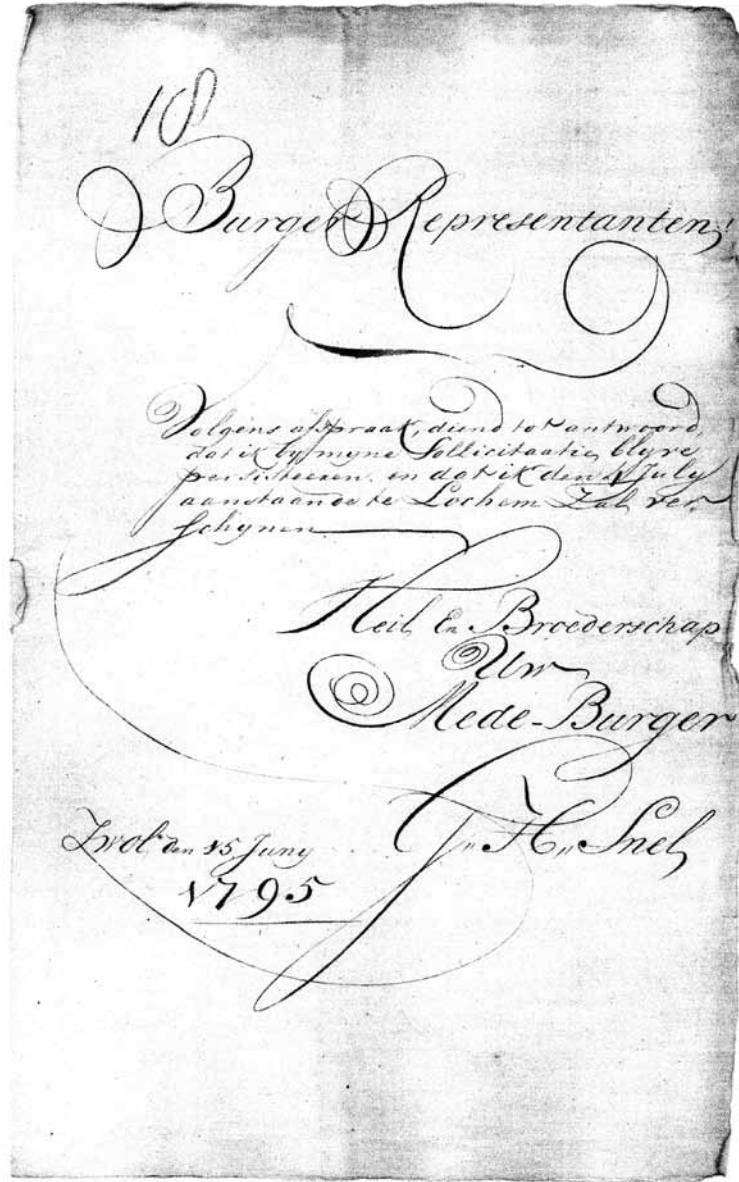 18
Burger Representanten!
Volgens afspraak, diend tot antwoord,
dat ik by myne Sollicitaatie, blyve
persisteeren. en dat ik den 4 July
aanstaande te Lochem Zal ver,
schynen
Heil En Broederschap
Uw
Mede-Burger
H,, Snel
Zwol den 15 Juny
1795